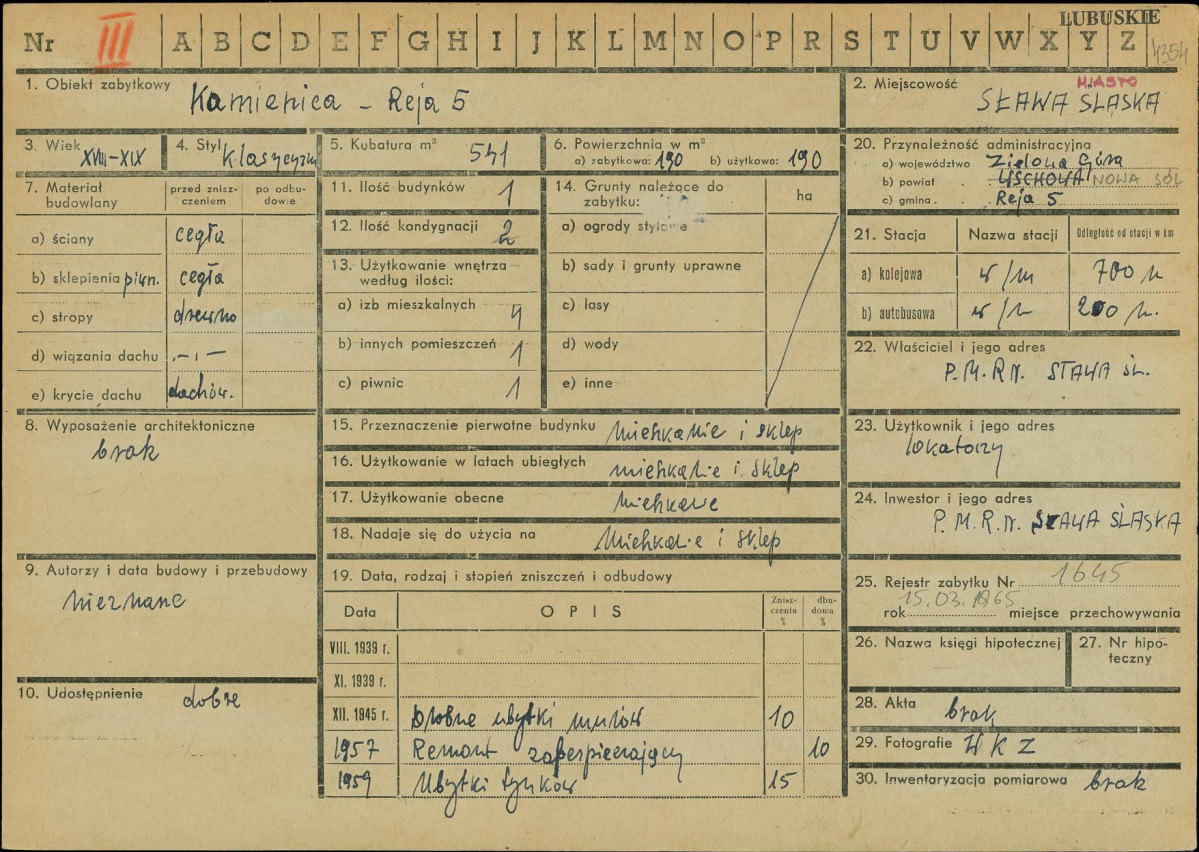 LUBUSKIE
Nr III A B C D E F G H I J K L M N O P R S T U V W X Y Z 4354
1. Obiekt zabytkowy Kamienica - Reja 5
2. Miejscowość MIASTO
SŁAWA ŚLĄSKA
3. Wiek XVIII-XIX
4. Styl klasycyzm
5. Kubatura m³ 541
6. Powierzchnia w m²
a) zabytkowa: 190 b) użytkowa: 190
20. Przynależność administracyjna
a) województwo Zielona Góra
b) powiat WSCHOWA NOWA SÓL
c) gmina Reja 5
7. Materiał budowlany
przed zniszczeniem
po odbudowie
a) ściany cegła
b) sklepienia piwn. cegła
c) stropy drewno
d) wiązania dachu -"-
e) krycie dachu dachów.
11. Ilość budynków 1
12. Ilość kondygnacji 2
13. Użytkowanie wnętrza według ilości:
a) izb mieszkalnych 4
b) innych pomieszczeń 1
c) piwnic 1
14. Grunty należące do zabytku:
ha
a) ogrody stylowe
b) sady i grunty uprawne
c) lasy
d) wody
e) inne
21. Stacja Nazwa stacji Odległość od stacji w km
a) kolejowa w/m 700 m
b) autobusowa w/m 200 m.
22. Właściciel i jego adres
P.M.R.N. SŁAWA ŚL.
8. Wyposażenie architektoniczne
brak
15. Przeznaczenie pierwotne budynku mieszkanie i sklep
16. Użytkowanie w latach ubiegłych mieszkanie i sklep
17. Użytkowanie obecne mieszkanie
18. Nadaje się do użycia na mieszkanie i sklep
23. Użytkownik i jego adres
lokatorzy
24. Inwestor i jego adres
P.M.R.N. SŁAWA ŚLĄSKA
9. Autorzy i data budowy i przebudowy
nieznane
19. Data, rodzaj i stopień zniszczeń i odbudowy
Data OPIS Zniszczenia % dbudowa %
VIII. 1939 r.
XI. 1939 r.
XII. 1945 r. Drobne ubytki murów 10
1957 Remont zabezpieczający 10
1959 Ubytki tynków 15
25. Rejestr zabytku Nr 1645
15.03.1965
rok miejsce przechowywania
26. Nazwa księgi hipotecznej
27. Nr hipoteczny
10. Udostępnienie dobre
28. Akta brak
29. Fotografie WKZ
30. Inwentaryzacja pomiarowa brak